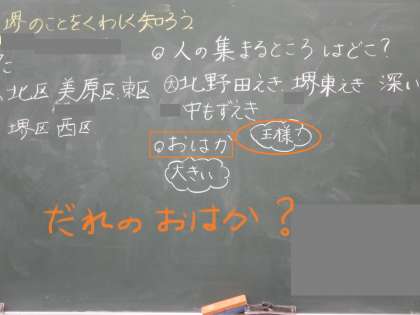 堺のことをくわしく知ろう
人の集まるところはどこ?
た
北区 美原区 東区
堺区 西区
大北野田えき、堺東えき 深い
中もずえき
おはか
王様?
大きい
だれのおはか?